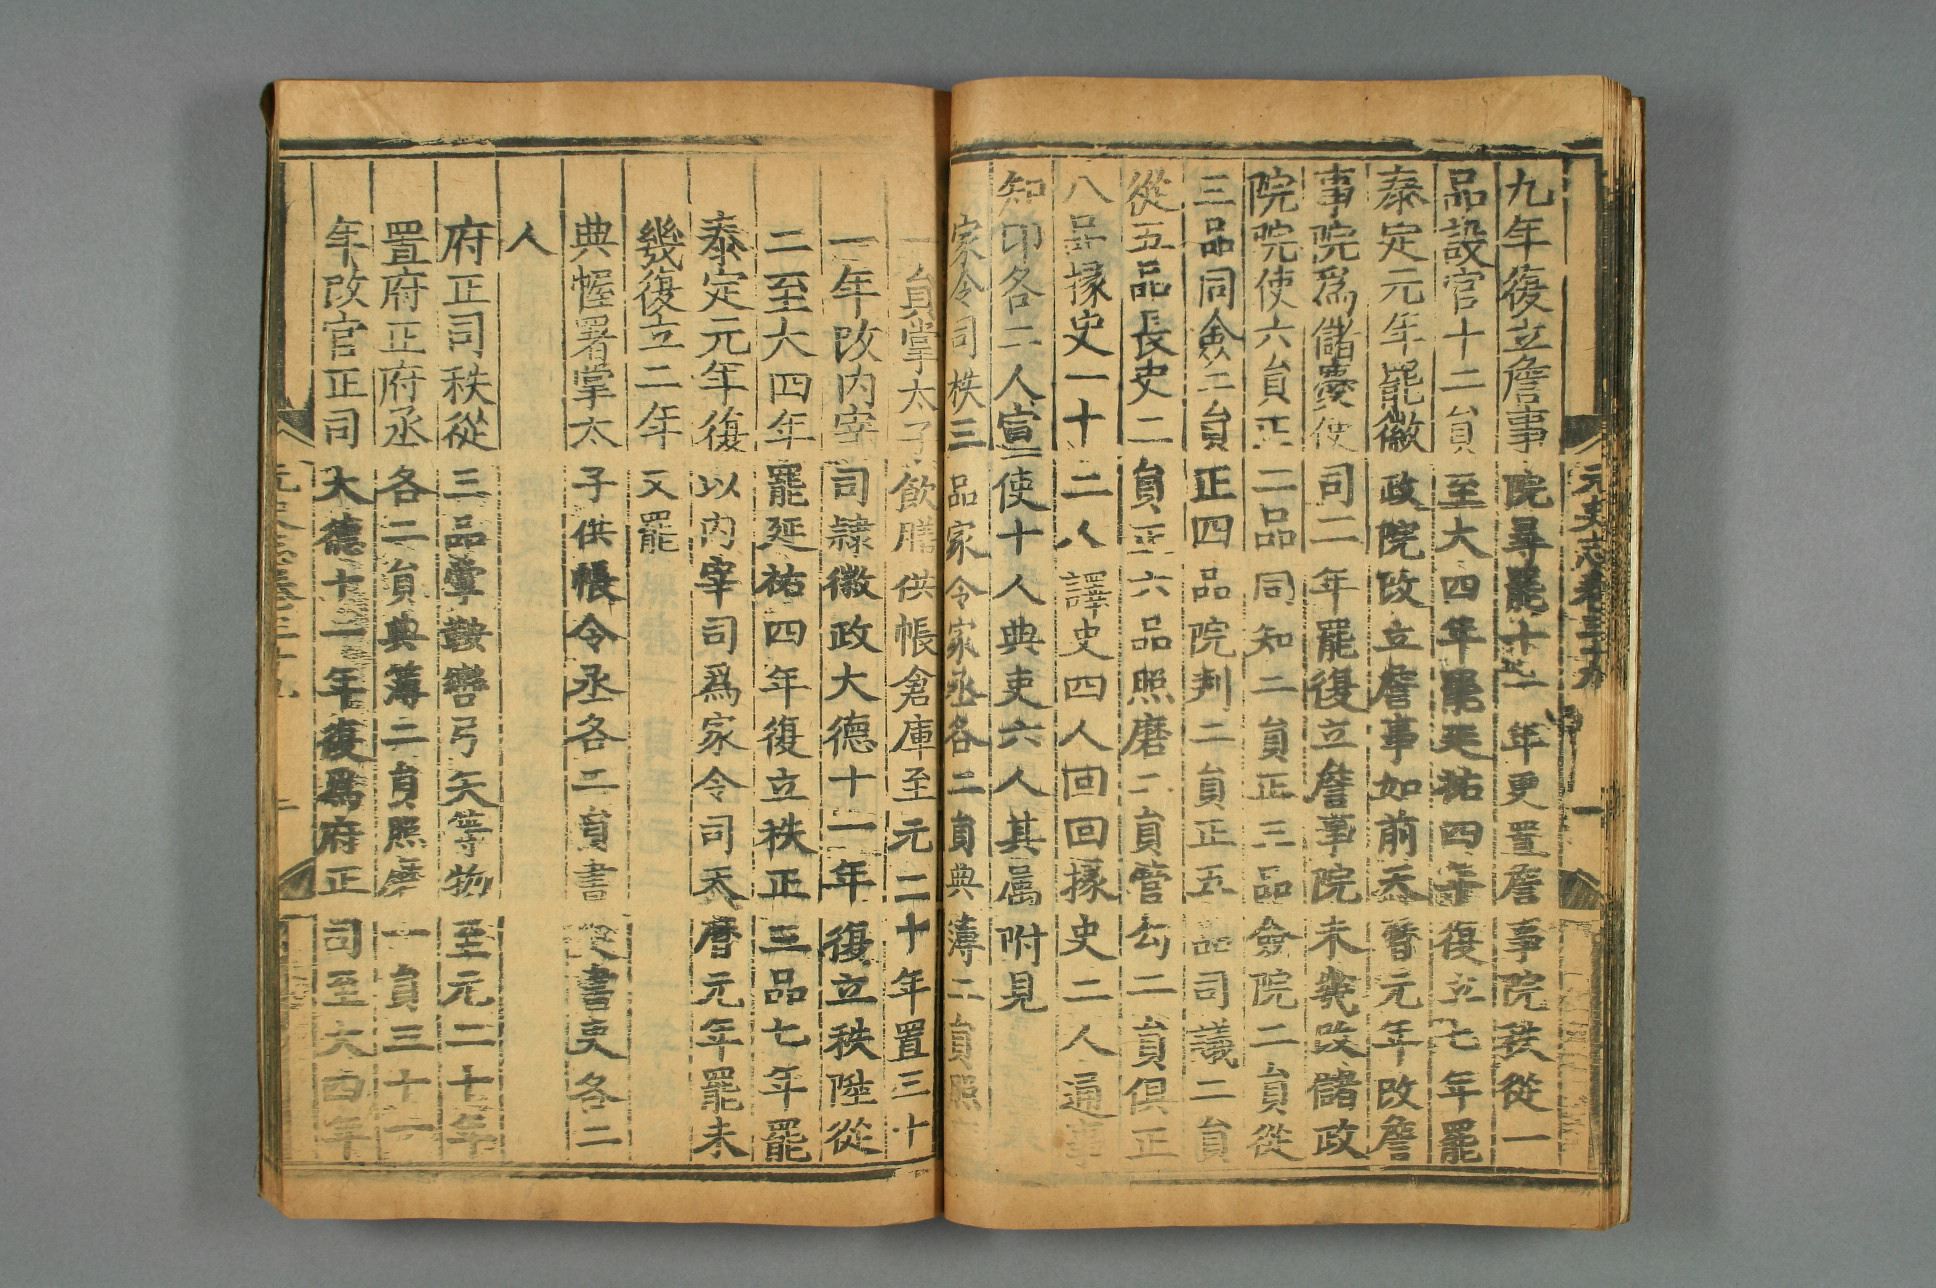 元史志卷三十九
一
九年復立詹事院尋罷十一年更置詹事院秩從一
品設官十二員至大四年罷延祐四年復立七年罷
泰定元年罷徽政院改立詹事如前天曆元年改詹
事院爲儲慶使司二年罷復立詹事院未幾改儲政
院院使六員正二品同知二員正三品僉院二員從
三品同僉二員正四品院判二員正五品司議二員
從五品長史二員正六品照磨二員管勾二員俱正
八品掾史一十二人譯史四人回回掾史二人通事
知印各二人宣使十人典吏六人其屬附見
家令司秩三品家令家丞各二員典簿二員照
一員掌太子飲膳供帳倉庫至元二十年置三十
一年改内宰司隷徽政大德十一年復立秩陞從
二至大四年罷延祐四年復立秩正三品七年罷
泰定元年復以内宰司爲家令司天曆元年罷未
幾復立二年又罷
典幄署掌太子供帳令丞各二員書史書吏各二
人
府正司秩從三品掌鞍轡弓矢等物至元二十年
置府正府丞各二員典簿二員照磨一員三十一
年改官正司大德十一年復爲府正司至大四年